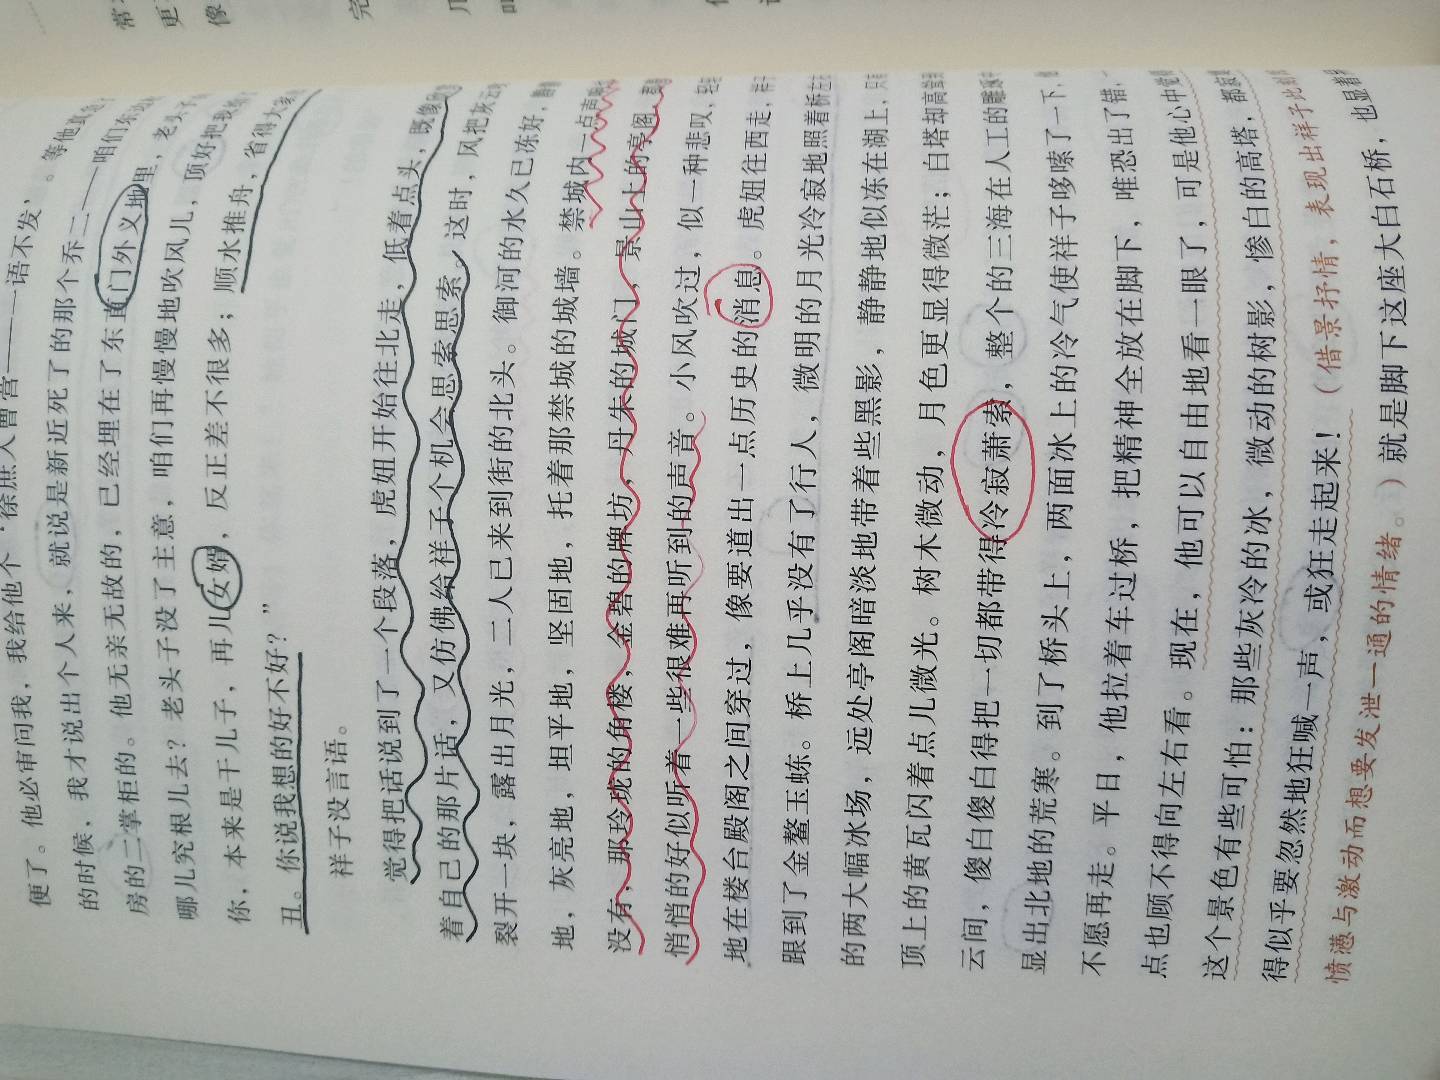 便了。他必审问我，我给他个‘徐庶入曹营——一语不发’。等他真急了
的时候，我才说出个人来，就说是新近死了的那个乔二——咱们东边
房的二掌柜的。他无亲无故的，已经埋在了东直门外义地里，老头子
哪儿究根儿去？老头子没了主意，咱们再慢慢地吹风儿，顶好把我给
你，本来是干儿子，再儿女婿，反正差不很多；顺水推舟，省得大家
丑。你说我想的好不好？”
祥子没言语。
觉得把话说到了一个段落，虎妞开始往北走，低着点头，既像
着自己的那片话，又仿佛给祥子个机会思索思索。这时，风把灰云
裂开一块，露出月光，二人已来到街的北头。御河的水久已冻好，
地，灰亮地，坦平地，坚固地，托着那禁城的城墙。禁城内一点声
没有，那玲珑的角楼，金碧的牌坊，丹朱的城门，景山上的亭阁
悄悄的好似听着一些很难再听到的声音。小风吹过，似一种悲叹，
地在楼台殿阁之间穿过，像要道出一点历史的消息。虎妞往西走，
跟到了金鳌玉蝀。桥上几乎没有了行人，微明的月光冷寂地照着桥左
的两大幅冰场，远处亭阁暗淡地带着些黑影，静静地似冻在湖上，只
顶上的黄瓦闪着点儿微光。树木微动，月色更显得微茫；白塔却高
云间，傻白傻白得把一切都带得冷寂萧索，整个的三海在人工的雕琢中
显出北地的荒寒。到了桥头上，两面冰上的冷气使祥子哆嗦了一下，
不愿再走。平日，他拉着车过桥，把精神全放在脚下，唯恐出了错，
点也顾不得向左右看。现在，他可以自由地看一眼了，可是他心中觉得
这个景色有些可怕：那些灰冷的冰，微动的树影，惨白的高塔，都寂
得似乎要忽然地狂喊一声，或狂走起来！（借景抒情，表现出祥子此刻
愤懑与激动而想要发泄一通的情绪。）就是脚下这座大白石桥，也显着